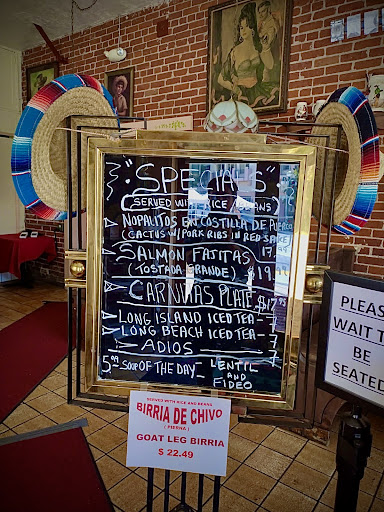 "SPECIALS"
(SERVED WITH RICE/BEANS)
NOPALITOS EN COSTILLA DE PUERCO
(CACTUS W/PORK RIBS IN RED SAUCE)
17.95
SALMON FAJITAS
(TOSTADA GRANDE) $19
CARNITAS PLATE $17.95
LONG ISLAND ICED TEA - 7
LONG BEACH ICED TEA - 7
ADIOS 7
5.99 SOUP OF THE DAY - LENTIL
AND
FIDEO
SERVED WITH RICE AND BEANS
BIRRIA DE CHIVO
( PIERNA )
GOAT LEG BIRRIA
$ 22.49
PLEASE
WAIT T
BE
SEATED